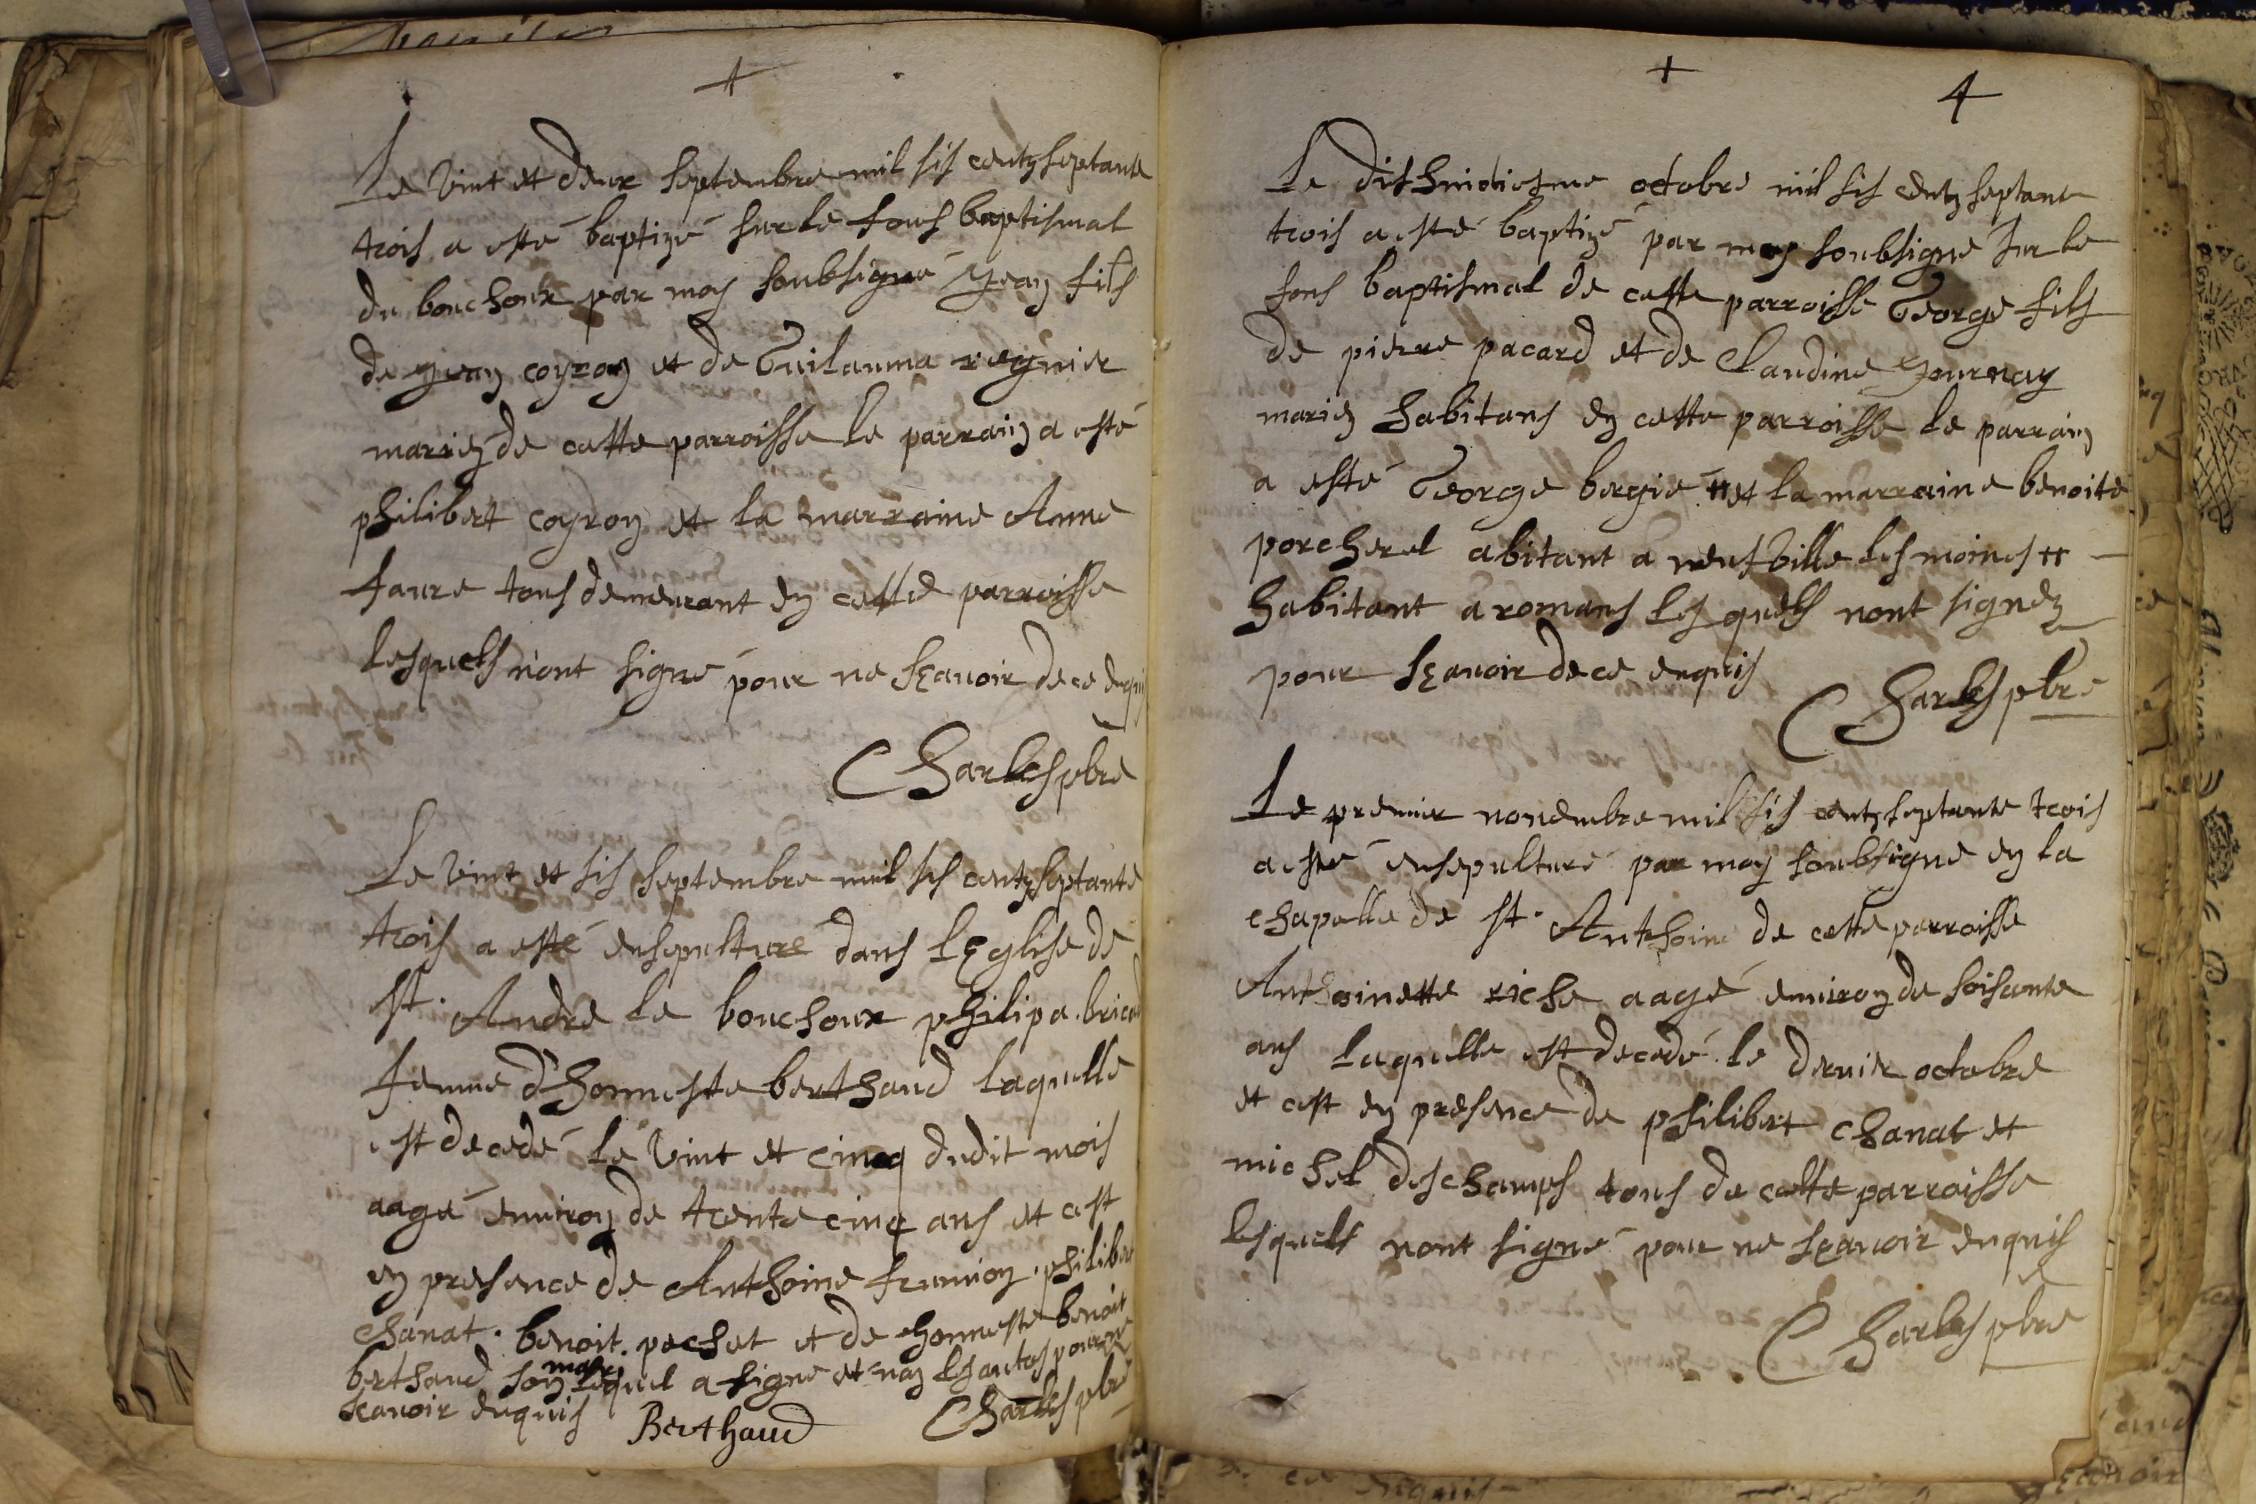 +
Le vint et deux septembre mil sis centz septante
trois a esté baptizé sur le fons baptismal
du bouchoux par moy soubsigné yean fils
de yean coyron et de Guilauma regnier
mariez de cette parroisse le parrain a esté
philibert coyron et la marraine Anne
faure tous demeurant en cette parroisse
lesquels n'ont signé pour ne sçavoir de ce enquis
Charles pbre
Le vint et sis septembre mil sis centz septante
trois a esté ensepulturé dans l'Eglise de
st. André le bouchoux philipa
femme d'honneste berthaud laquelle
est decedé le vint et cincq dudit mois
aagé environ de trente cinq ans et cest
en presence de Anthoine philibert
chanat. benoit. pochet et de honneste benoit
berthaud son mary lequel a signé et non les autres pour ne
scavoir enquis Berthaud Charles pbre
+ 4
Le dishuictiesme octobre mil sis centz septante
trois a esté baptizé par moy soubsigne sur le
fons baptismal de cette parroisse George filz
de pierre pacard et de Claudine yournay
mariez habitans en cette parroisse le parrain
a esté George bergie # et la marraine benoite
porcherel abitant a neufville les moines #
habitant a romans lesquels nont signez
pour sçavoir de ce enquis
Charles pbre
Le premier novembre mil sis centz septante trois
a esté ensepulturé par moy soubsigne en la
chapelle de st. Anthoine de cette parroisse
Anthoinette riche aagé environ de soisante
ans laquelle est decedé le dernier octobre
et cest en presence de philibert chanat et
michel deschamps tous de cette parroisse
lesquels nont signé pour ne sçavoir enquis
Charles pbre